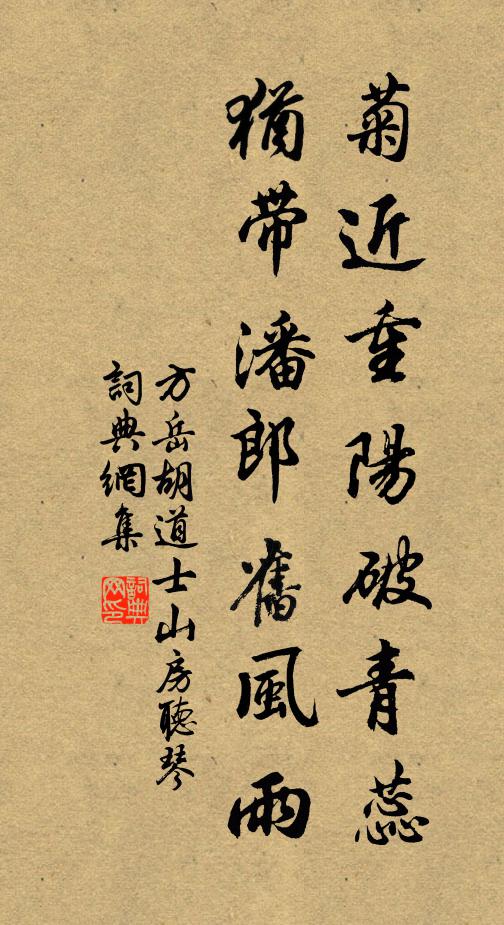 菊近重陽破青蕊
猶帶潘郎舊風雨
方岳胡道士山房聽琴
詞典網集
詞典網印